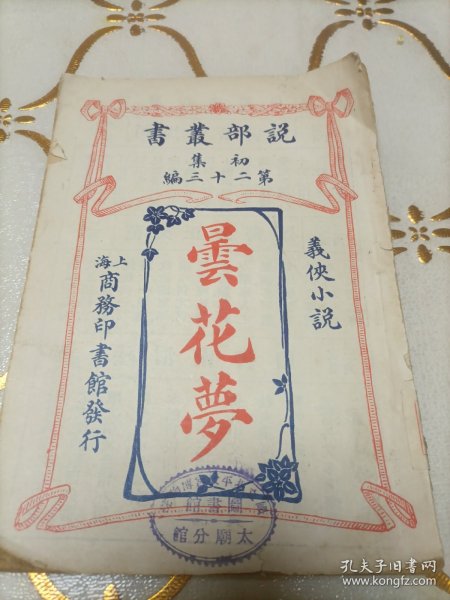 説部叢書
初集
第二十三編
義俠小説
曇花夢
上海商務印書館發行
圖書館
太廟分館
孔夫子旧书网
www.kongfz.com